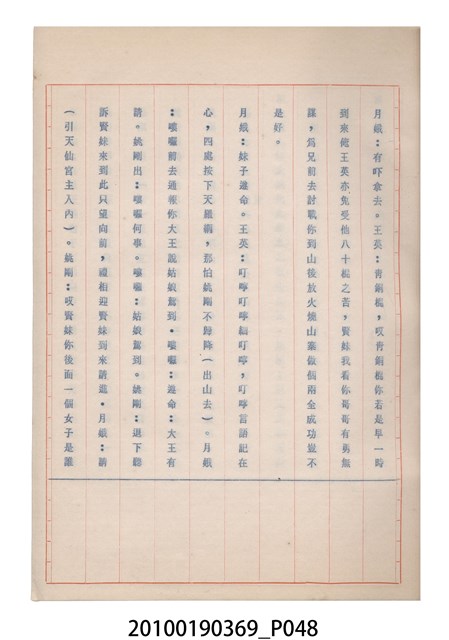 月娥：有吓拿去。王英：青銅棍，哎青銅棍你若是早一時
到來俺王英亦免受他八十棍之苦，賢妹我看你哥哥有勇無
謀，爲兄前去討戰你到山後放火燒山寨做個兩全成功豈不
是好。
月娥：妹子遵命。王英：叮嚀叮嚀偏叮嚀，叮嚀言語記在
心，四處按下天羅網，那怕姚剛不歸降（出山去）。月娥
：嘍囉前去通報你大王說姑娘駕到。嘍囉：遵命：大王有
請。姚剛出：嘍囉何事。嘍囉：姑娘駕到。姚剛：退下聽
訴賢妹來到此只望向前，禮相迎賢妹到來請進。月娥：請
（引天仙官主入內）。姚剛：哎賢妹你後面一個女子是誰
20100190369_P048